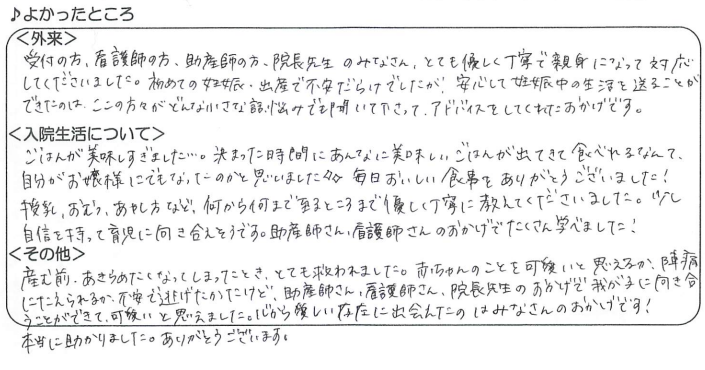 ♪よかったところ
＜外来＞
受付の方、看護師の方、助産師の方、院長先生のみなさん、とても優しく丁寧で親身になって対応
してくださいました。初めての妊娠・出産で不安だらけでしたが、安心して妊娠中の生活を送ることが
できたのは、ここの方々がどんな小さな話、悩みでも聞いて下さって、アドバイスをしてくれたおかげです。
＜入院生活について＞
ごはんが美味しすぎました…。決まった時間にあんなに美味しいごはんが出てきて食べれるなんて、
自分がお嬢様にでもなったのかと思いました 毎日おいしい食事をありがとうございました!
授乳、おむつ、あやし方など、何から何まで至るところまで優しく丁寧に教えてくださいました。少し
自信を持って育児に向き合えそうです。助産師さん、看護師さんのおかげでたくさん学べました!
＜その他＞
産む前、あきらめたくなってしまったとき、とても救われました。赤ちゃんのことを可愛いと思えるか、陣痛
にたえられるか、不安で逃げたかったけど、助産師さん、看護師さん、院長先生のおかげで我がまま向き合
うことができて、可愛いと思えました。心から愛しい存在に出会えたのはみなさんのおかげです!
本当に助かりました。ありがとうございます。